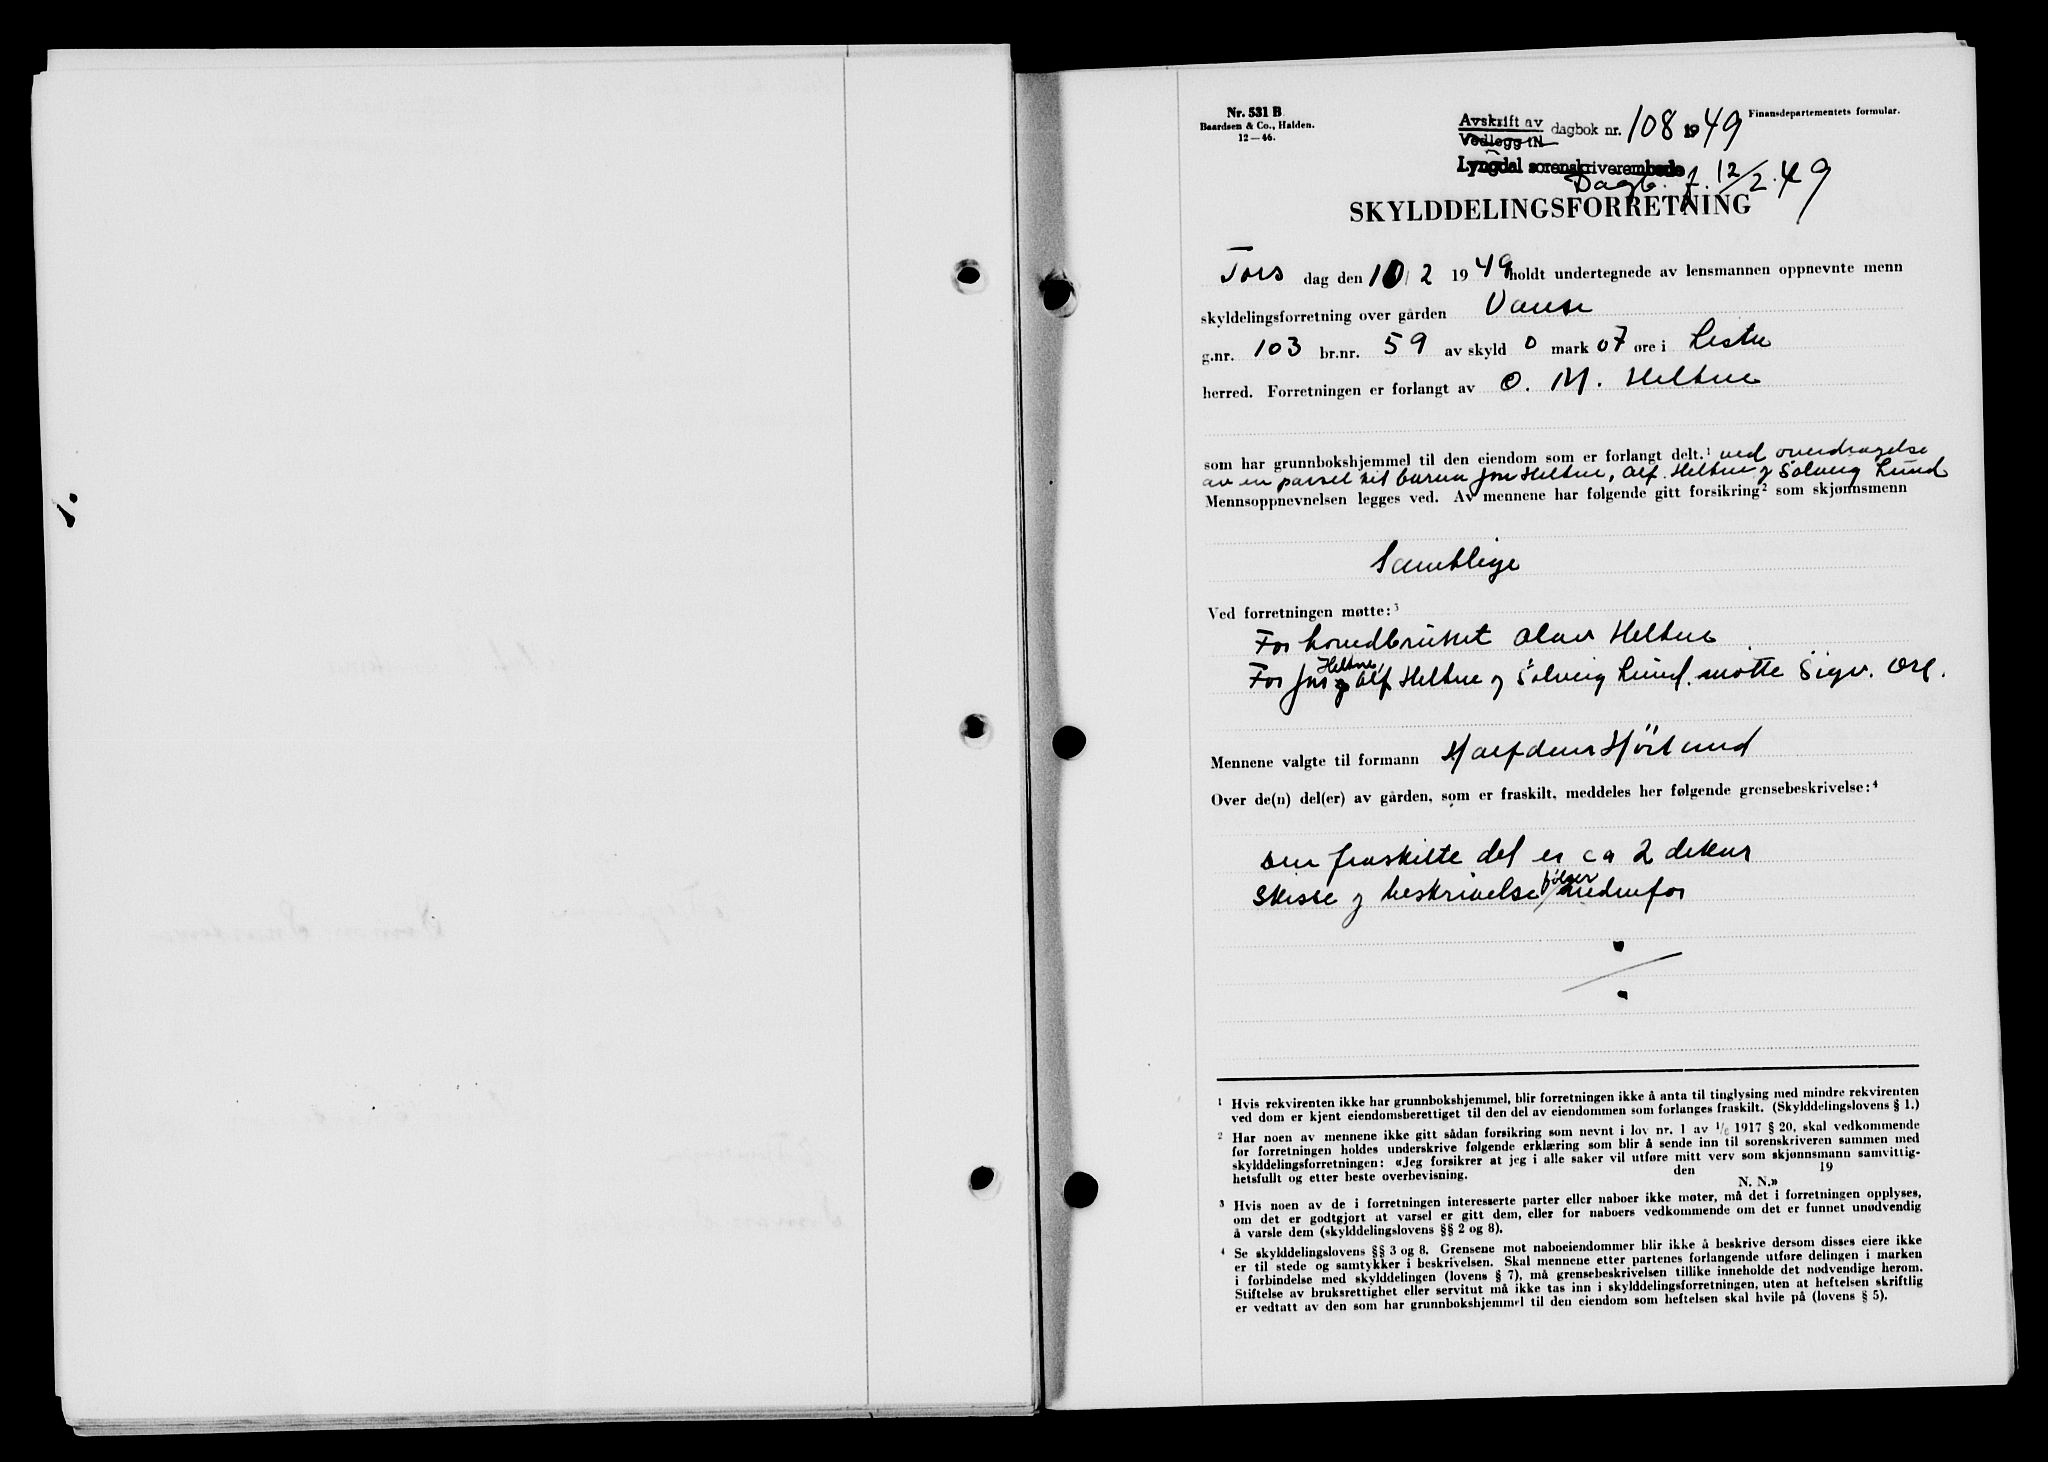 Nr. 531 B
Baardsen & Co., Halden.
12—46.
Finansdepartementets formular.
Avskrift av dagbok nr. 108 1949
Vedlegg til
Lyngdal sorenskriverembede
Dagb. f. 12/2.49
SKYLDDELINGSFORRETNING
Tors dag den 10/2 1949 holdt undertegnede av lensmannen oppnevnte menn
skyldelingsforretning over gården Vanse
g.nr. 103 br.nr. 59 av skyld 0 mark 07 øre i Lista
herred. Forretningen er forlangt av O. M. Heltne
som har grunnbokshjemmel til den eiendom som er forlangt delt.¹ ved overdragelse
av en parsel til barna Jon Heltne, Alf Heltne og Solveig Lund
Mennsoppnevnelsen legges ved. Av mennene har følgende gitt forsikring² som skjønnsmenn
Samtlige
Ved forretningen møtte:³
For hovedbruket Olav Heltne
For Jon Heltne, Alf Heltne og Solveig Lund. møtte Sigv.
Mennene valgte til formann Halfdan Hørlund
Over de(n) del(er) av gården, som er fraskilt, meddeles her følgende grensebeskrivelse:⁴
Den fraskilte del er ca 2 dekar
Skisse og beskrivelse følger nedenfor
¹ Hvis rekvirenten ikke har grunnbokshjemmel, blir forretningen ikke å anta til tinglysing med mindre rekvirenten
ved dom er kjent eiendomsberettiget til den del av eiendommen som forlanges fraskilt. (Skylddelingslovens § 1.)
² Har noen av mennene ikke gitt sådan forsikring som nevnt i lov nr. 1 av 1/6 1917 § 20, skal vedkommende
før forretningen holdes underskrive følgende erklæring som blir å sende inn til sorenskriveren sammen med
skylddelingsforretningen: «Jeg forsikrer at jeg i alle saker vil utføre mitt verv som skjønnsmann samvittig-
hetsfullt og etter beste overbevisning.
den 19
N. N.»
³ Hvis noen av de i forretningen interesserte parter eller naboer ikke møter, må det i forretningen opplyses,
om det er godtgjort at varsel er gitt dem, eller for naboers vedkommende om det er funnet unødvendig
å varsle dem (skylddelingslovens §§ 2 og 8).
⁴ Se skylddelingslovens §§ 3 og 8. Grensene mot naboeiendommer blir ikke å beskrive dersom disses eiere ikke
er til stede og samtykker i beskrivelsen. Skal mennene etter partenes forlangende utføre delingen i marken
i forbindelse med skylddelingen (lovens § 7), må grensebeskrivelsen tillike inneholde det nødvendige herom.
Stiftelse av bruksrettighet eller servitut må ikke tas inn i skylddelingsforretningen, uten at heftelsen skriftlig
er vedtatt av den som har grunnbokshjemmel til den eiendom som heftelsen skal hvile på (lovens § 5).